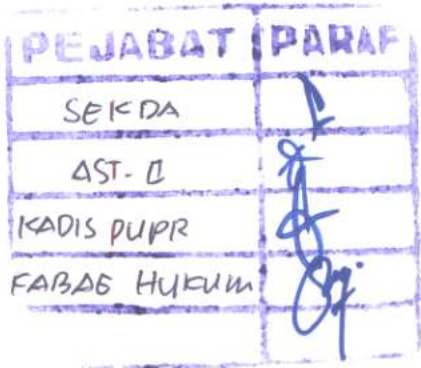 PEJABAT PARAF
SEKDA
AST-II
KADIS PUPR
KABAG HUKUM